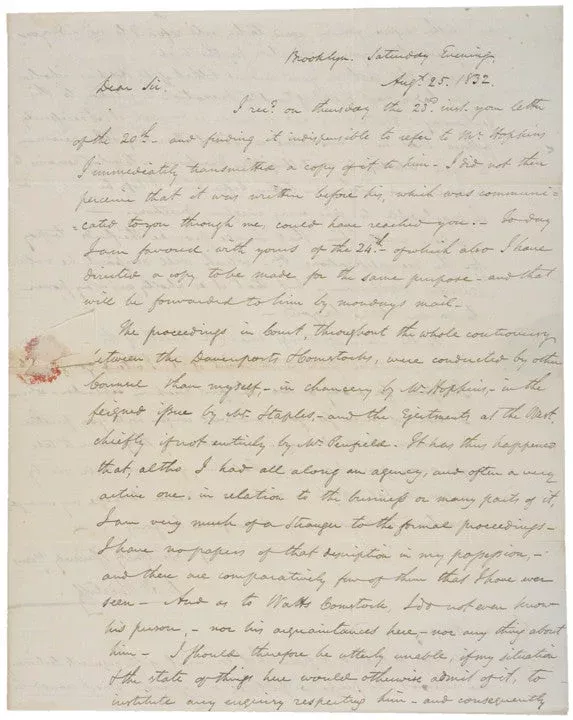 Brooklyn. Saturday Evening.
Augt. 25. 1832.
Dear Sir,
I recd. on thursday the 23d. inst. you letter
of the 20th. and finding it indispensible to refer to Mr. Hopkins
I immediately transmitted a copy of it to him - I did not then
perceive that it was written before his, which was communi=
=cated to you through me, could have reached you. - to day
I am favoured with yours of the 24th. of which also I have
directed a copy to be made for the same purpose - and that
will be forwarded to him by mondays mail -
The proceedings in Court, throughout the whole controversy
between the Davenports & Comstocks, were conducted by other
Counsel than myself, - in chancery by Mr. Hopkins, - in the
feigned issue by Mr. Staples, - and the Ejectments, at the West,
chiefly if not entirely by Mr. Penfield. It has thus happened
that, altho I had all along an agency, and often a very
active one, in relation to the business or many parts of it,
I am very much of a stranger to the formal proceedings -
I have no papers of that description in my possession, -
and there are comparatively few of them that I have ever
seen - And as to Watts Comstock, I do not even know
his person, - nor his acquaintances here, - nor any thing about
him - I should therefore be utterly unable, if my situation
& the state of things here would otherwise admit of it, to
institute any enquiry respecting him - and consequently